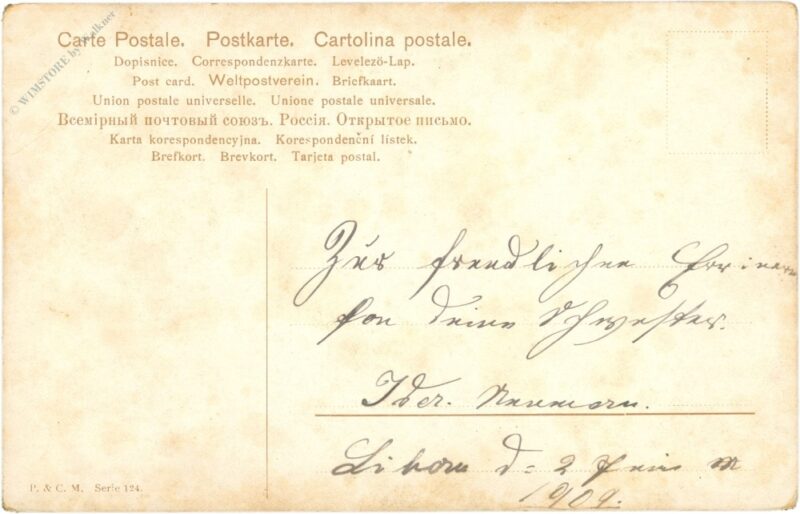 © WIMSTORE by Falkner
Carte Postale. Postkarte. Cartolina postale.
Dopisnice. Correspondenzkarte. Levelezö-Lap.
Post card. Weltpostverein. Briefkaart.
Union postale universelle. Unione postale universale.
Всемірный почтовый союзъ. Россія. Открытое письмо.
Karta korespondencyjna. Korespondenční listek.
Brefkort. Brevkort. Tarjeta postal.
Zur freudlichen
fon deine Schwester.
Neumann.
Libau d= 2
1909.
P. & C. M. Serie 124.